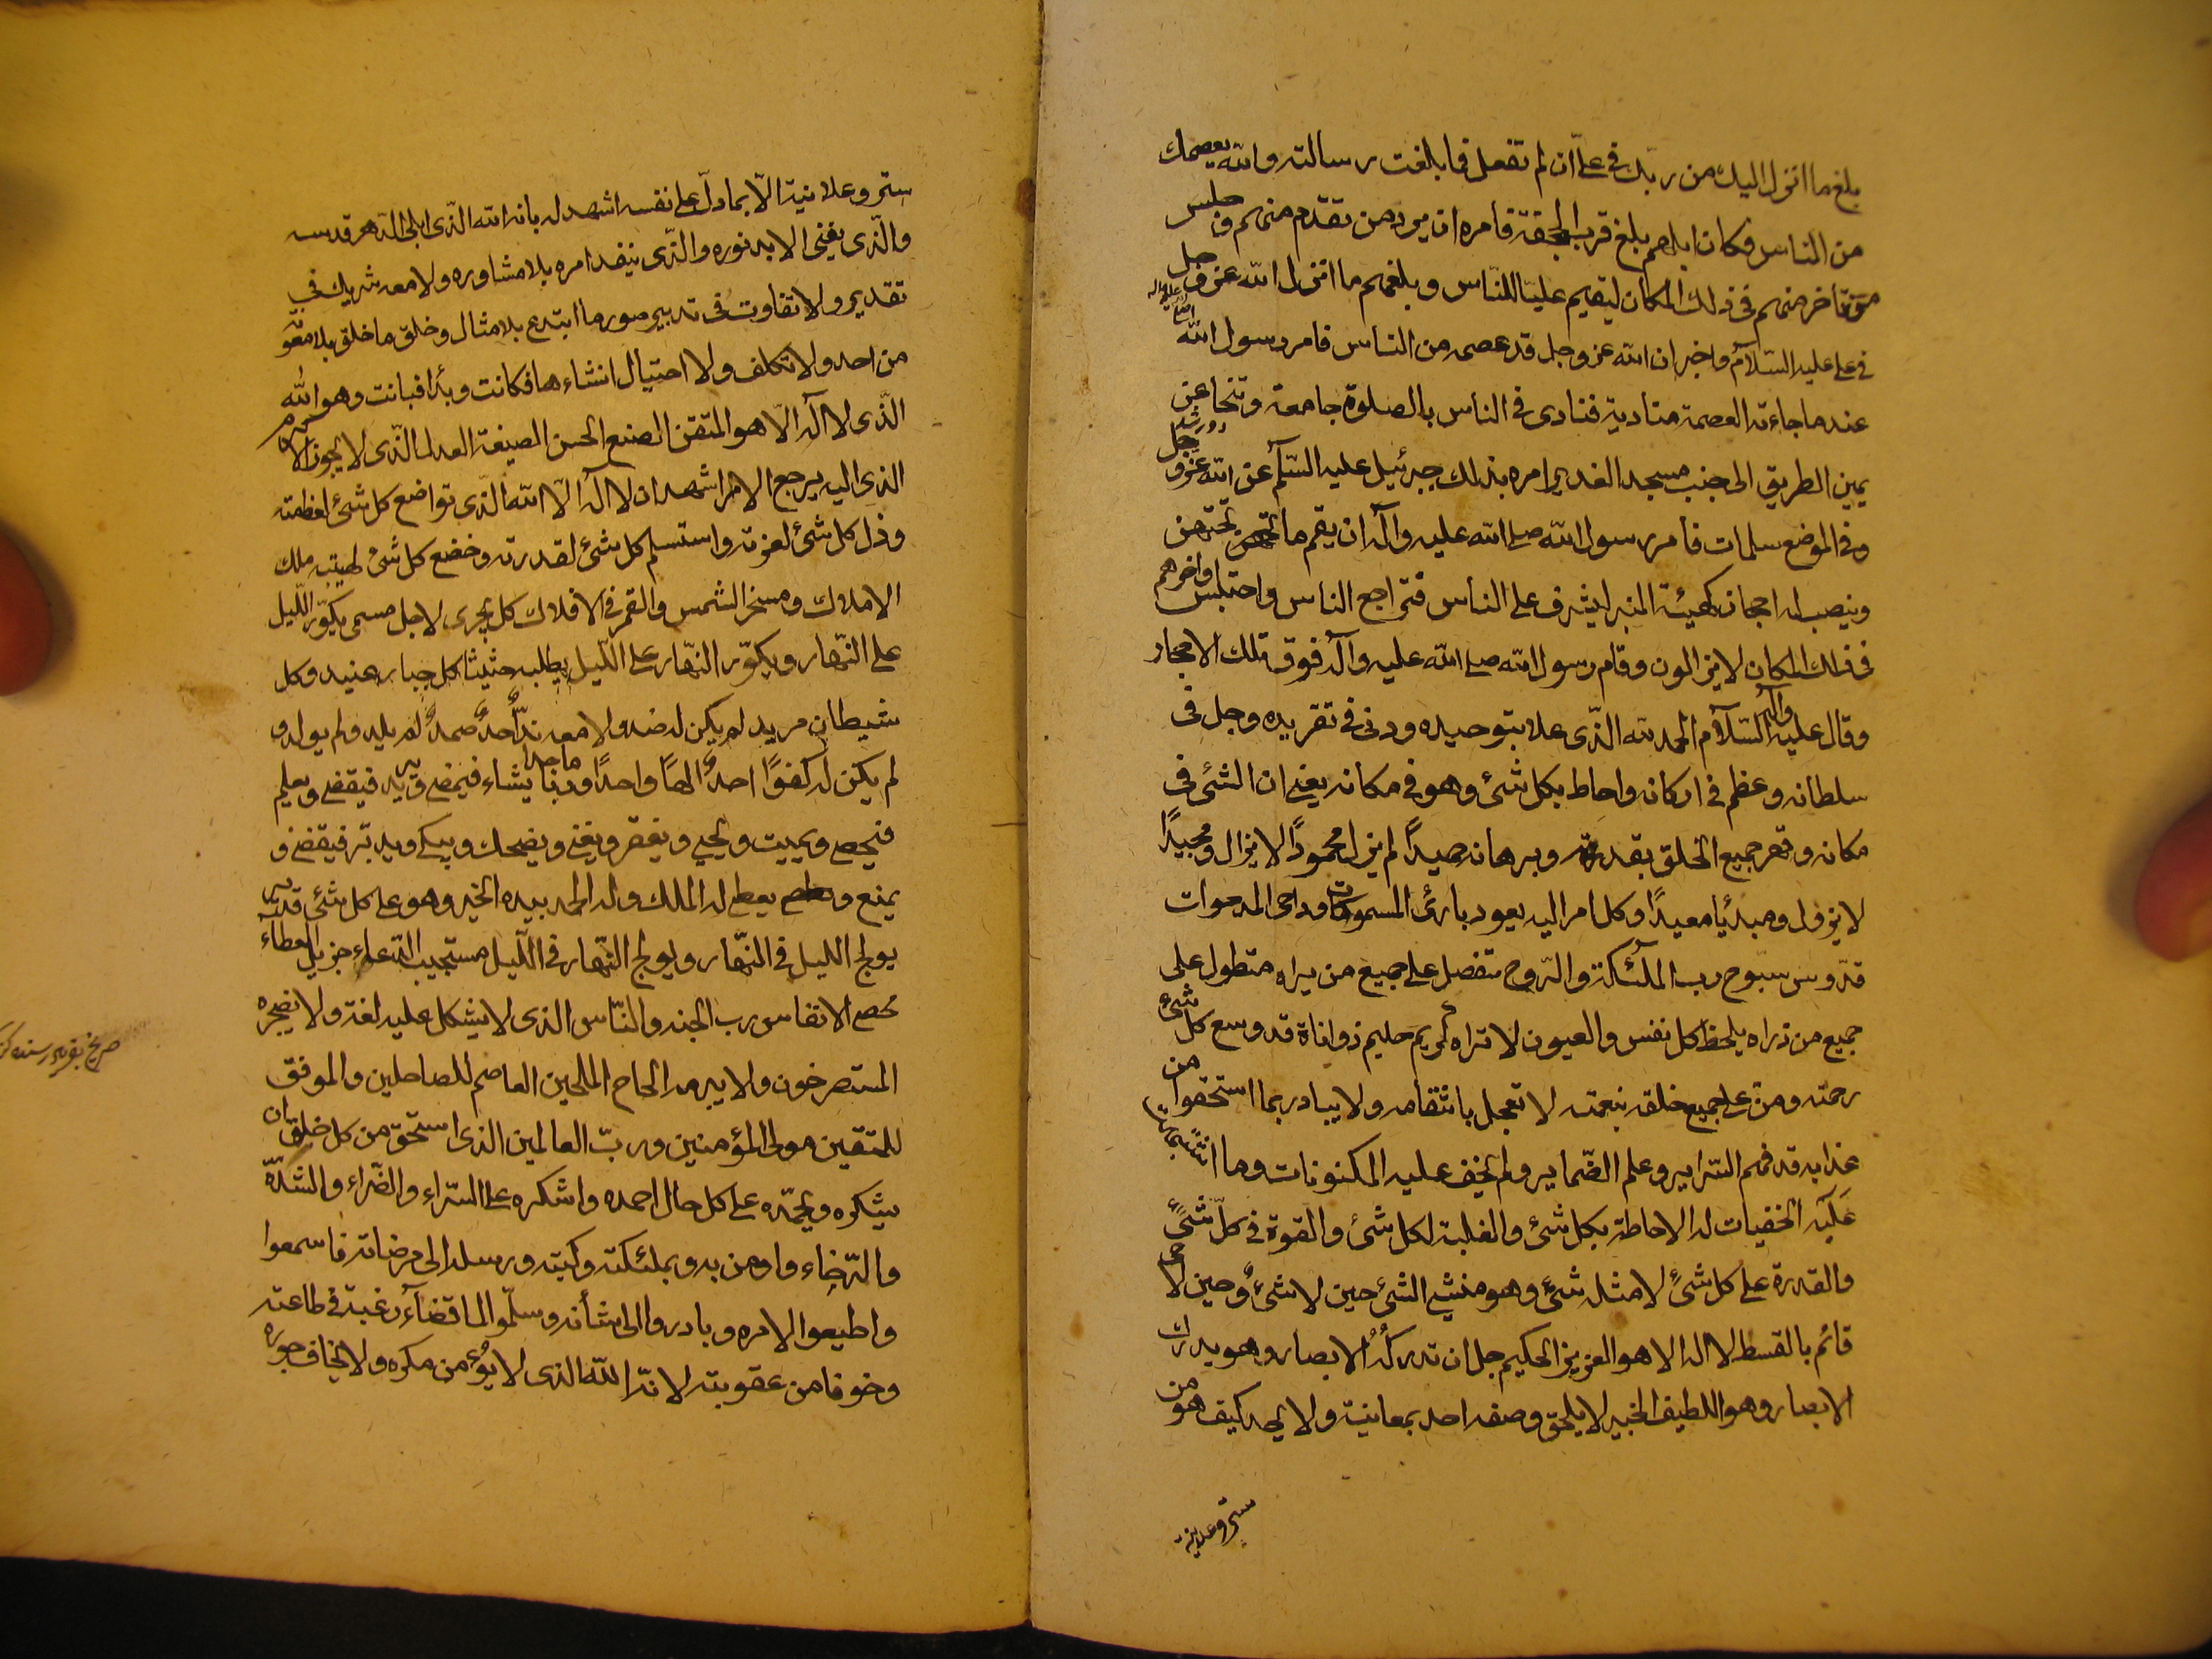 بلغ ما انزل اليك من ربّك في عليّ ان لم تفعل فما بلغت رسالته والله يعصمك
من الناس وكان ابلهم بلغ قرب الجحفة فامره ان يرد من تقدّم منهم وحبس
من تاخر منهم في ذلك المكان ليقيم عليّا للنّاس ويبلغهم ما انزل الله عز وجل
في علي عليه السّلام واخبر ان الله عز وجل قد عصمه من الناس فامر رسول الله
عند ما جاءته العصمة مناديه فنادى في الناس بالصلوة جامعة وتنحا عن
يمين الطريق الى جنب مسجد الغدير امره بذلك جبرئيل عليه السّلم عن الله عز وجل
وفي الموضع سلمات فامر رسول الله صلى الله عليه وآله ان يقم ما تحتهن
وينصب له احجار كهيئة المنبر ليشرف على الناس فتراجع الناس واحتبس واخرهم
في ذلك المكان لا يزالون وقام رسول الله صلى الله عليه وآله فوق تلك الاحجار
وقال عليه وآله السّلام الحمد لله الذّي علا بتوحيده ودنى في تفريده وجل في
سلطانه وعظم في اركانه واحاط بكل شئ وهو في مكانه يعني ان الشئ في
مكانه وقهر جميع الخلق بقدرته وبرهانه حميدًا لم يزل محمودًا لا يزال ومجيدًا
لا يزول ومبدئًا معيدًا وكل امر اليه يعود بارئ المسموكات وداحى المدحوات
قدّوس سبّوح رب الملئكة والرّوح متفضل على جميع من يراه متطول على
جميع من ذراه يلحظ كل نفس والعيون لا تراه كريم حليم ذو اناة قد وسع كل شئ
رحمته ومن على جميع خلقه بنعمته لا تعجل بانتقامه ولا يبادر بما استحقوا من
عذابه قد فهم السّراير وعلم الضّماير ولم يخف عليه المكنونات وما اشتبهت
عليه الخفيات له الاحاطة بكل شئ والغلبة لكل شئ والقوة في كلّ شئ
والقدرة على كل شئ لا مثله شئ وهو منشئ الشئ حين لا شئ وحين لا حى
قائم بالقسط لا اله الا هو العزيز الحكيم جل ان تدركه الابصار وهو يدرك
الابصار وهو اللطيف الخبير لا يلحق وصفه احد بمعاينة ولا يحد كيف هو من
سرّ وعلانية
سرّ وعلانية الّا بما دلّ على نفسه اشهد له بانه الله الذّى ابلى الدّهر قدسه
والذّى يغنى الابد نوره والذّى ينفد امره بلا مشاوره ولا معه شريك في
تقديره ولا تفاوت في تدبيره صور ما ابتدع بلا مثال وخلق ما خلق بلا معونة
من احد ولا تكلف ولا احتيال انشاءها فكانت وبرأها فبانت وهو الله
الذّى لا اله الّا هو المتقن الصنع الحسن الصيغة العدل الذّى لا يجور الاكرم
الذى اليه يرجع الامر اشهد ان لا اله الّا الله الذّى تواضع كل شئ لعظمته
وذل كل شئ لعزته واستسلم كل شئ لقدرته وخضع كل شئ لهيبته ملك
الاملاك ومسخر الشمس والقمر في الافلاك كل يجرى لاجل مسمى يكوّر اللّيل
على النّهار ويكوّر النّهار على اللّيل يطلبه حثيثا كل جبار عنيد وكل
شيطان مريد لم يكن له ضد ولا معه ندّ احدٌ صمدٌ لم يلد ولم يولد و
لم يكن له كفوًا احدٌ الهًا واحدًا وربًا ماجدا يشاء فيمضى ويريد فيقضى ويعلم
فيحصى ويميت ويحيى ويفقر ويغنى ويضحك ويبكى ويدبّر فيقضى و
يمنع ويعطى له الملك وله الحمد بيده الخير وهو على كل شئ قدير
يولج الليل في النّهار ويولج النّهار في اللّيل مستجيب الدّعاء جزيل العطاء
محصى الانفاس رب الجنه والنّاس الذى لا يشكل عليه لغة ولا يضجره
المستصرخون ولا يبرمه الحاح الملحين العاصم للصالحين والموفق
للمتقين مولى المؤمنين وربّ العالمين الذى استحق من كل خلق ان
يشكره ويحمّده على كل حال احمده واشكره على السّراء والضّراء والشدّة
والرّخاء واومن به وبملئكته وكتبه ورسله الى مرضاته فاسمعوا
واطيعوا لامره وبادروا الى شأنه وسلّموا لما قضاه رغبة في طاعته
وخوفا من عقوبته لانّه الله الذى لا يؤمن مكره ولا يخاف جوره